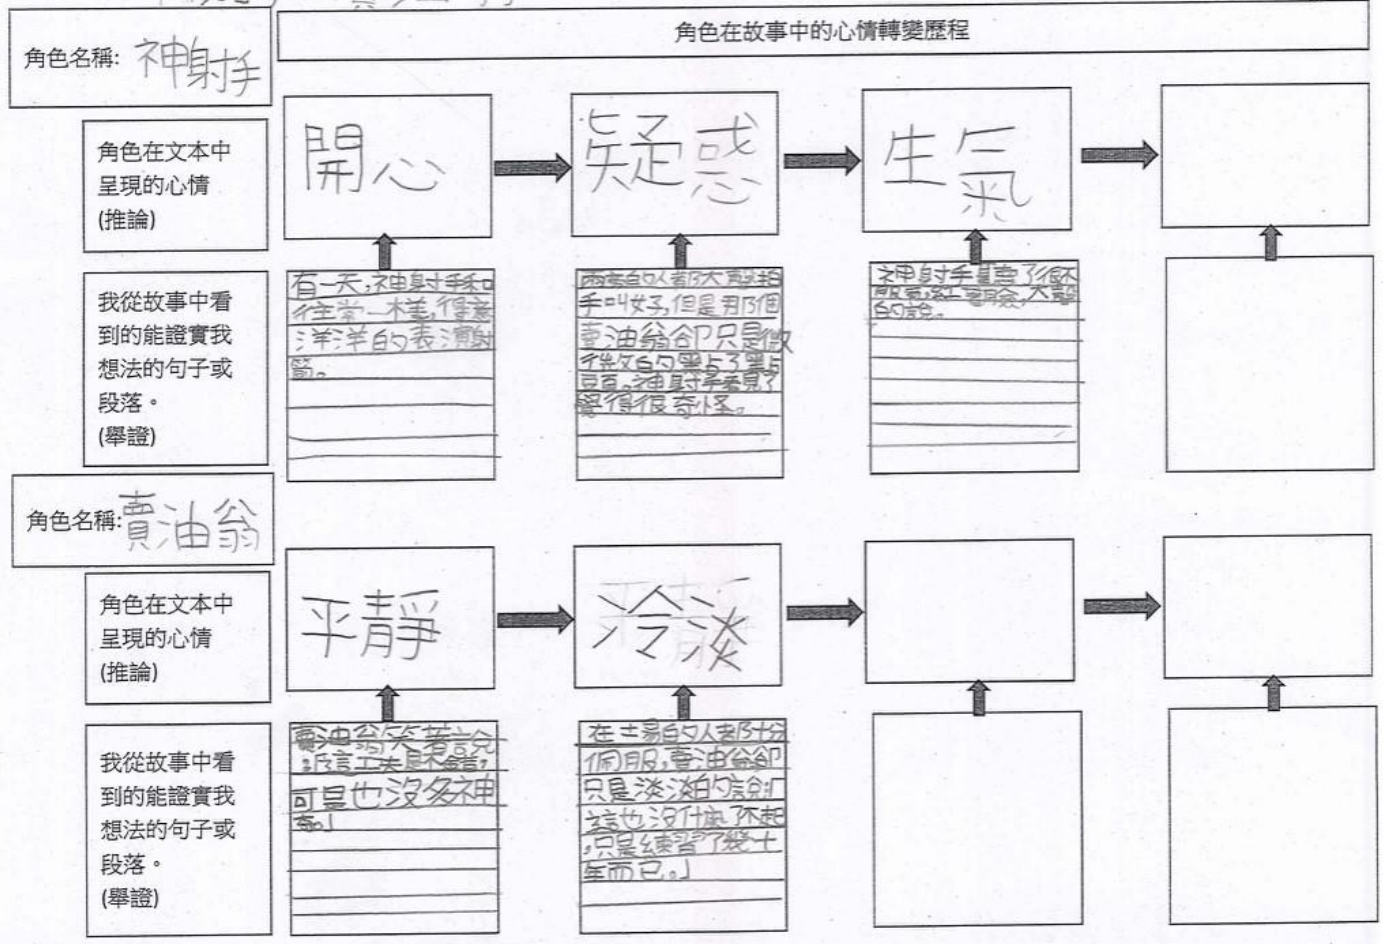 角色名稱:神射手
角色在故事中的心情轉變歷程
角色在文本中
呈現的心情
(推論)
開心
疑惑
生氣
我從故事中看
到的能證實我
想法的句子或
段落。
(舉證)
有一天,神射手和
往常一樣,得意
洋洋的表演射
箭。
兩旁的人都大聲拍
手叫好,但是那個
賣油翁卻只是微
微的點了點
頭。神射手看見了
覺得很奇怪。
神射手聽了很不
服氣,紅著臉,大聲
的說。
角色名稱:賣油翁
角色在文本中
呈現的心情
(推論)
平靜
冷淡
我從故事中看
到的能證實我
想法的句子或
段落。
(舉證)
賣油翁笑著說
:「這工夫是不錯,
可是也沒多神
奇。」
在場的人都十分
佩服,賣油翁卻
只是淡淡的說:「
這也沒什麼了不起
,只是練習了幾十
年而已。」